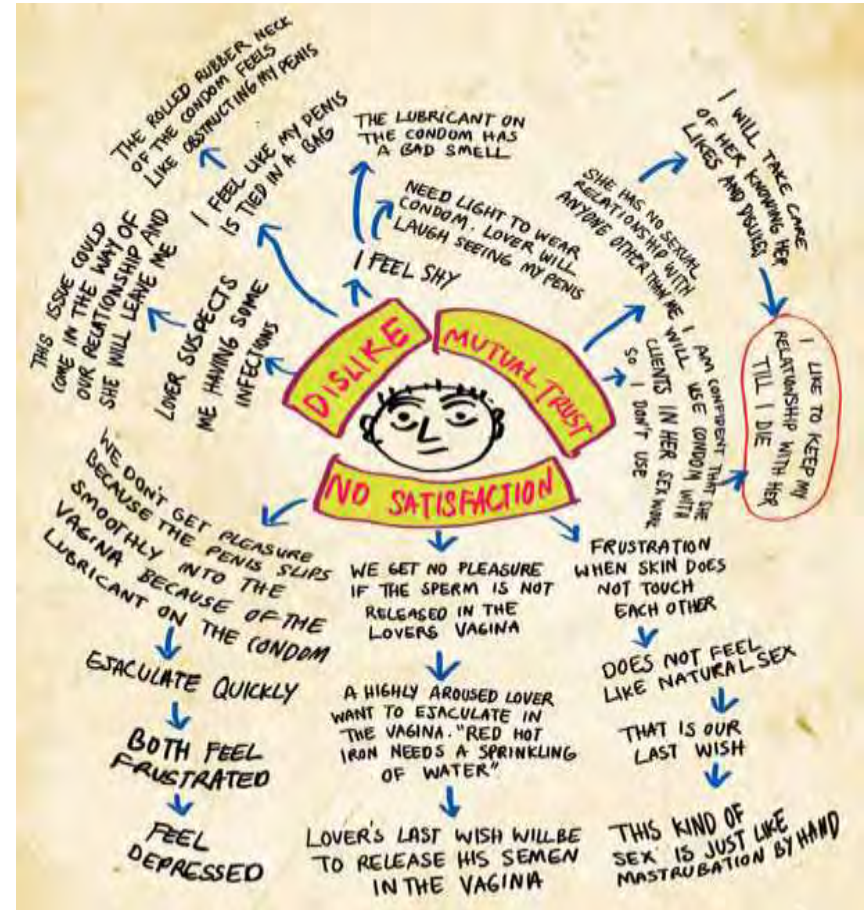 THE ROLLED RUBBER NECK
OF THE CONDOM FEELS
LIKE OBSTRUCTING MY PENIS
I FEEL LIKE MY PENIS
IS TIED IN A BAG
THE LUBRICANT ON
THE CONDOM HAS
A BAD SMELL
NEED LIGHT TO WEAR
CONDOM. LOVER WILL
LAUGH SEEING MY PENIS
I FEEL SHY
THIS ISSUE COULD
COME IN THE WAY OF
OUR RELATIONSHIP AND
SHE WILL LEAVE ME
LOVER SUSPECTS
ME HAVING SOME
INFECTIONS
DISLIKE
MUTUAL TRUST
SHE HAS NO SEXUAL
RELATIONSHIP WITH
ANYONE OTHER THAN ME
I WILL TAKE CARE
OF HER KNOWING HER
LIKES AND DISLIKES
I AM CONFIDENT THAT SHE
WILL USE CONDOM WITH
CLIENTS IN HER SEX WORK
SO I DON'T USE
I LIKE TO KEEP MY
RELATIONSHIP WITH HER
TILL I DIE
NO SATISFACTION
WE DON'T GET PLEASURE
BECAUSE THE PENIS SLIPS
SMOOTHLY INTO THE
VAGINA BECAUSE OF THE
LUBRICANT ON THE CONDOM
EJACULATE QUICKLY
BOTH FEEL
FRUSTRATED
FEEL
DEPRESSED
WE GET NO PLEASURE
IF THE SPERM IS NOT
RELEASED IN THE
LOVERS VAGINA
A HIGHLY AROUSED LOVER
WANT TO EJACULATE IN
THE VAGINA. "RED HOT
IRON NEEDS A SPRINKLING
OF WATER"
LOVER'S LAST WISH WILL BE
TO RELEASE HIS SEMEN
IN THE VAGINA
FRUSTRATION
WHEN SKIN DOES
NOT TOUCH
EACH OTHER
DOES NOT FEEL
LIKE NATURAL SEX
THAT IS OUR
LAST WISH
THIS KIND OF
SEX IS JUST LIKE
MASTRUBATION BY HAND